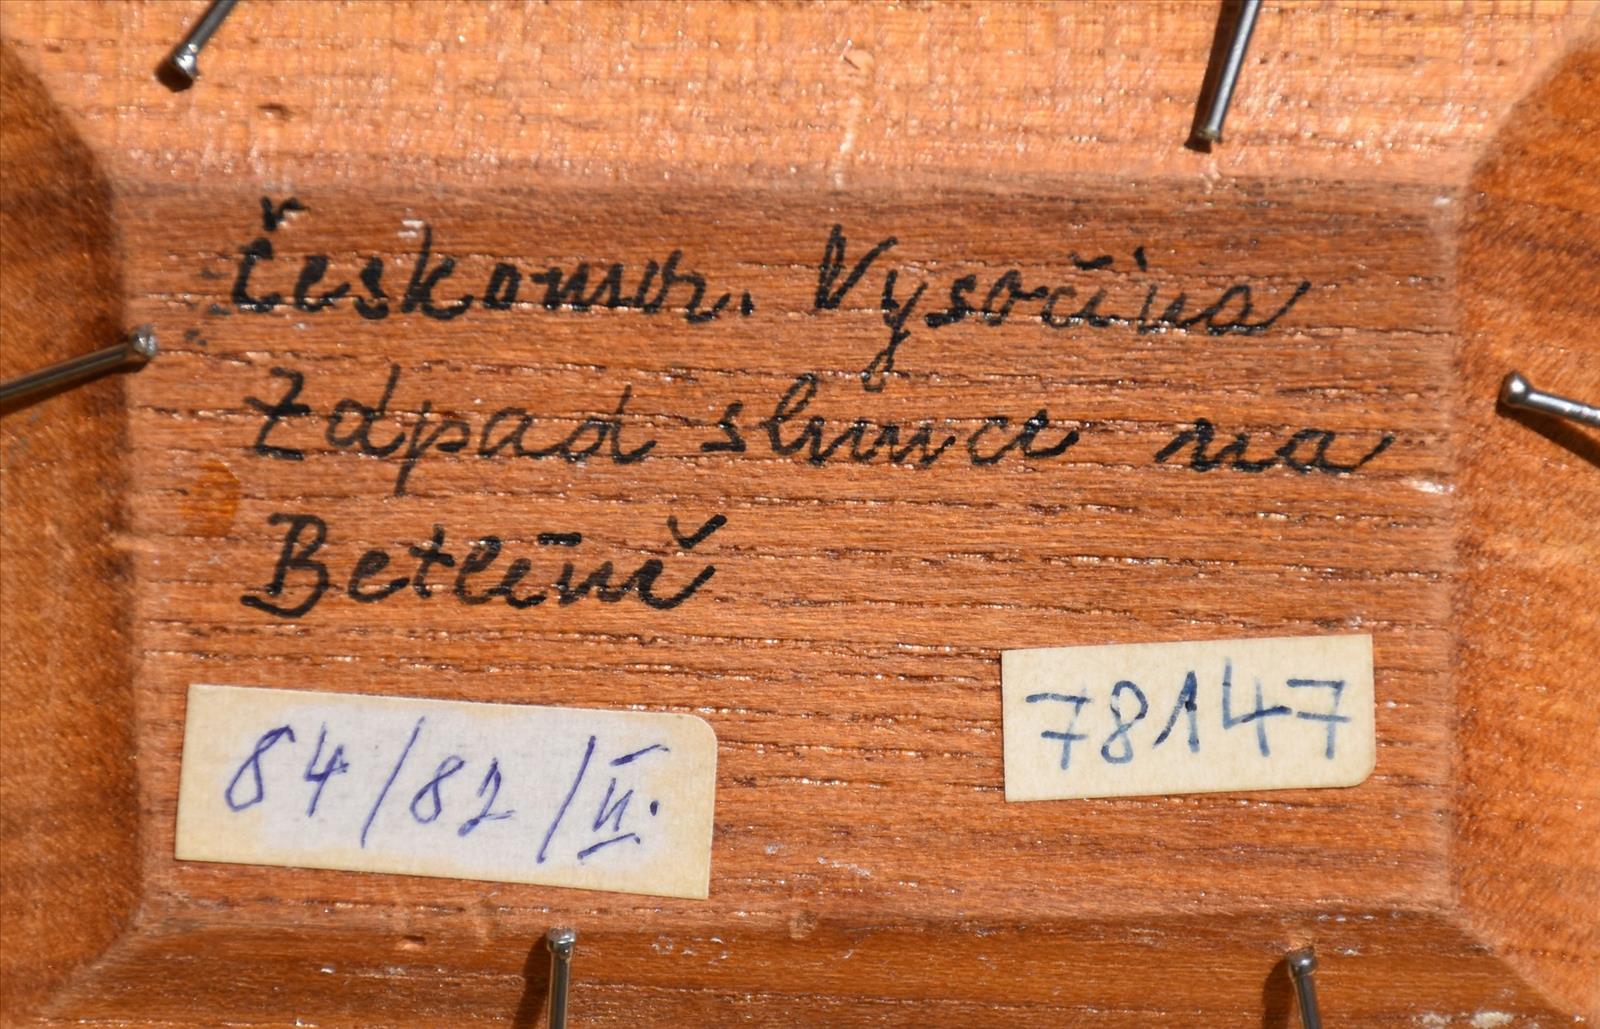 Českomor. Vysočina
Západ slunce na
Betlémě
84/82/II.
78147